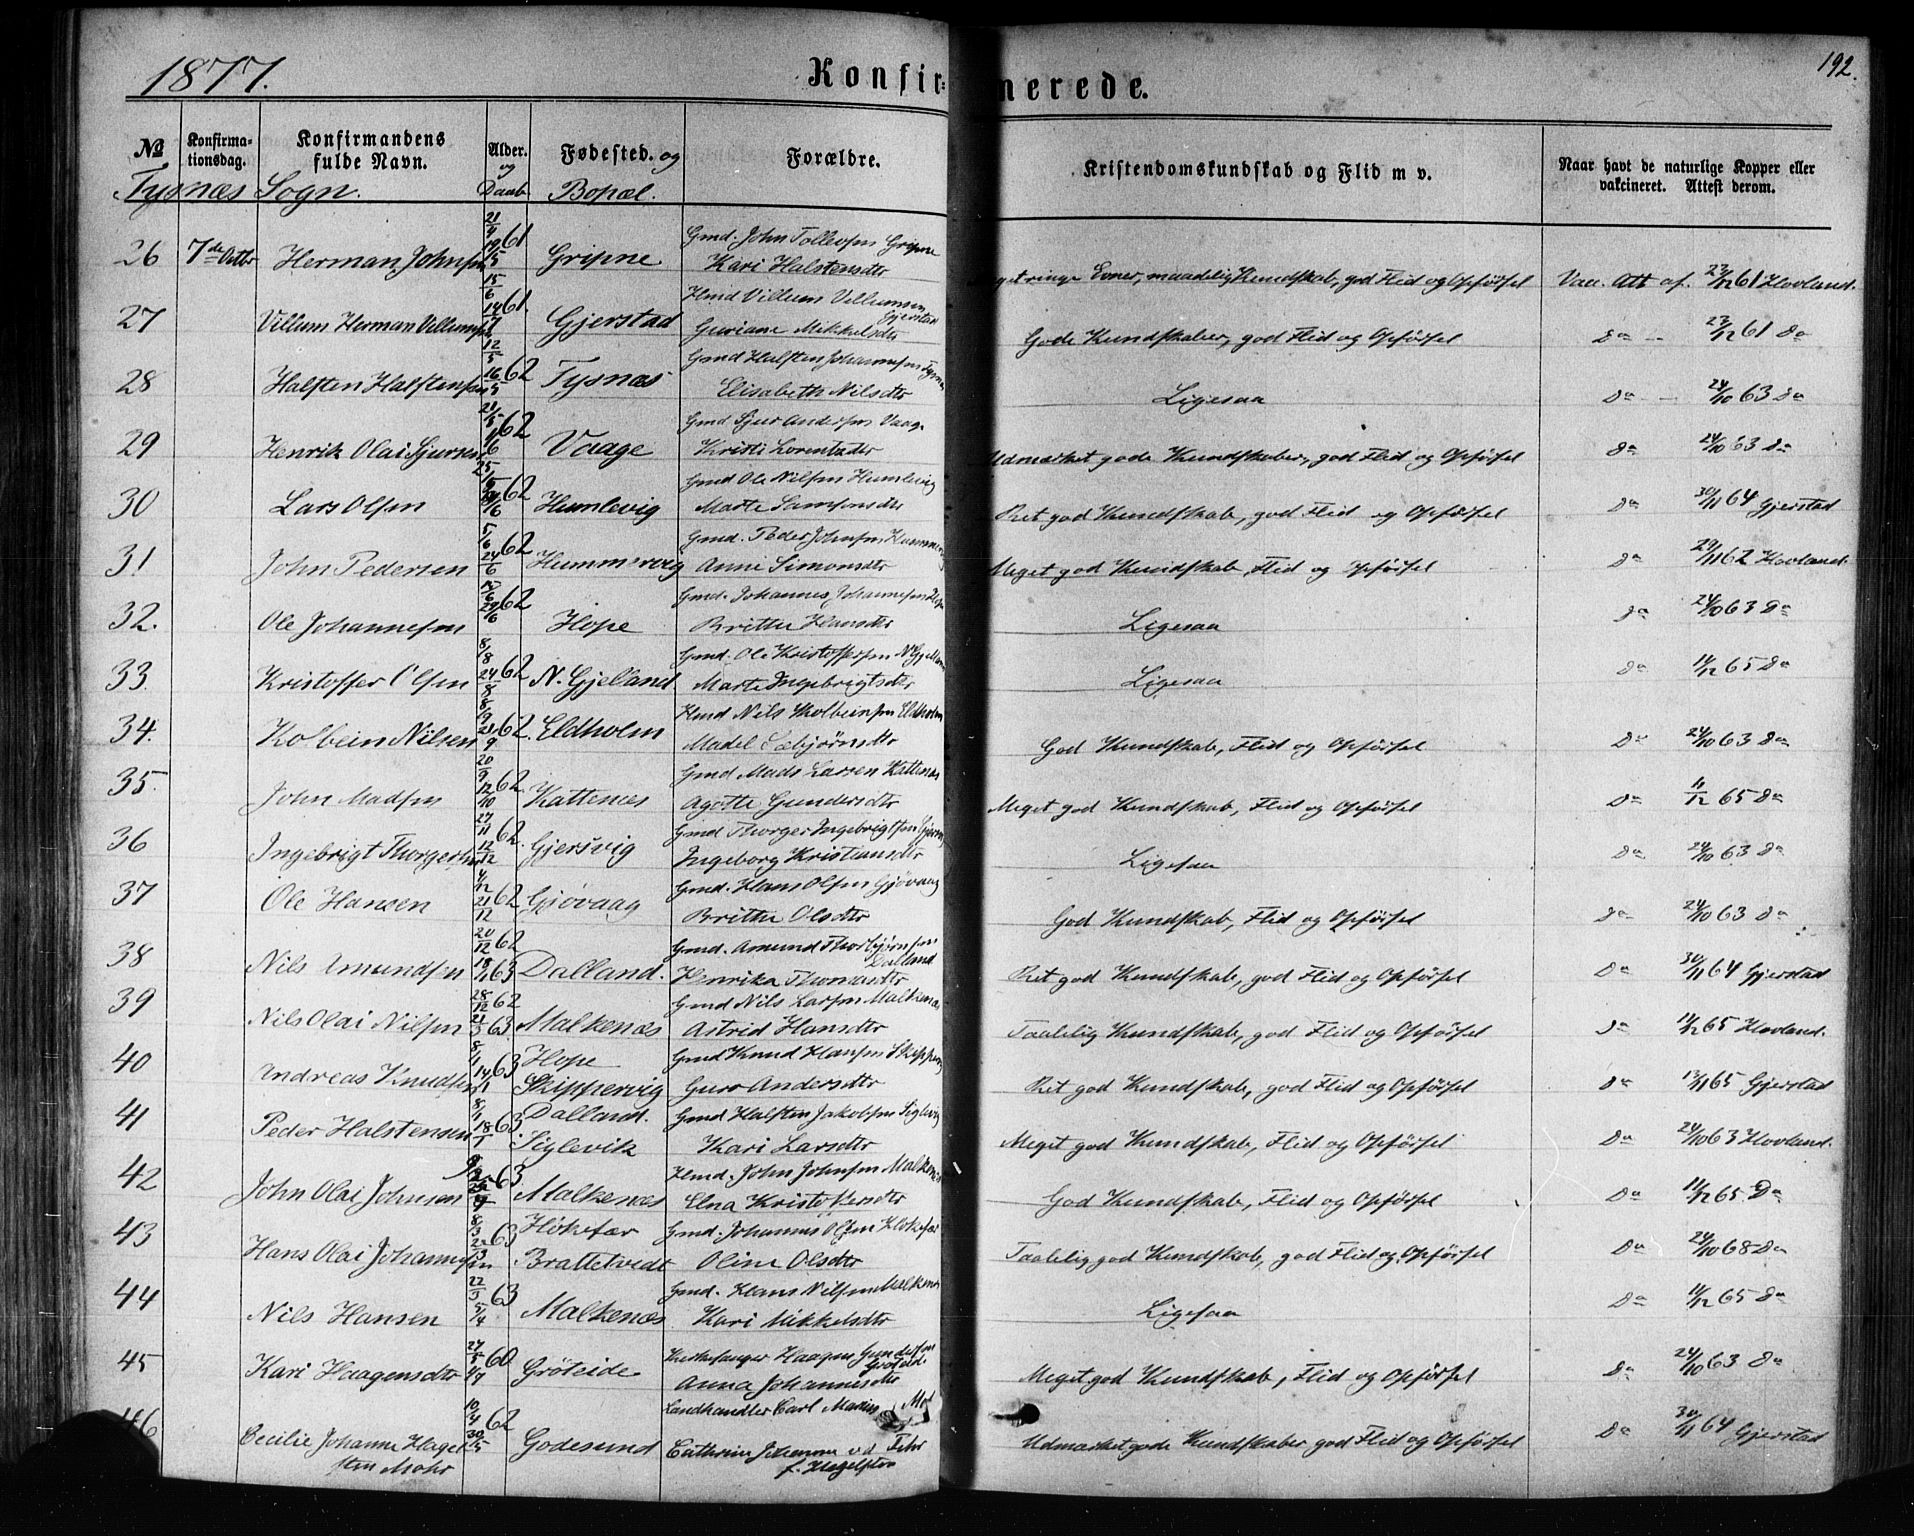 1877.
Konfir-
merede.
192.
№
Konfirma-
tionsdag.
Konfirmandens
fulde Navn.
Alder.
og
Daab
Fødested. og
Bopæl.
Forældre.
Kristendomskundskab og Flid m v.
Naar havt de naturlige Kopper eller
vakcineret. Attest derom.
Tysnæs Sogn.
26 7de Octbr Herman Johnsen 21/4 19/5 61 Gripne Gmd. John Tollevsen Gripne
Kari Halstensdtr
Meget ringe Evner, maadelig Kundskab, god Flid og Opførsel Vacc. Att af. 23/12 61 Hovland.
27 Villum Herman Villumsen 15/6 14/7 61. Gjerstad Hmd Villum Villumsen
Gjerstad
Guriane Mikkelsdtr
Gode Kundskaber, god Flid og Opførsel Do 23/12 61 Do
28 Halsten Halstensen 12/5 16/5 62 Tysnæs Gmd Halsten Johannesen Tysnæs
Elisabeth Nilsdtr
Ligesaa Do 24/10 63 Do
29 Henrik Olai Sjursen 21/5 1/6 62 Vaage Gmd Sjur Andersen Vaage
Kristi Lorentsdtr
Udmærket gode Kundskaber, god Flid og Opførsel Do 24/10 63 Do
30 Lars Olsen 62 Humlevig Gmd Ole Nilsen Humlevig
Marte Samsonsdtr
Ret god Kundskab, god Flid og Opførsel Do 30/11 64 Gjerstad
31 John Pedersen 5/6 24/6 62 Hummervig Gmd. Peder Johnsen Hummervig
Anne Simonsdtr
Meget god Kundskab, Flid og Opførsel Do 29/11 62 Hovland.
32. Ole Johannesen 29/6 62 Hope Gmd. Johannes Johannesen Hope
Britha Hansdtr
Ligesaa Do 24/10 63 Do
33. Kristoffer Olsen 8/8 24/8 62 N. Gjeland Gmd. Ole Kristoffersen N. Gjeland
Marte Ingebrigtsdtr
Ligesaa Do 11/12 65 Do
34. Kolbein Nilsen 62. Eldholm Hmd Nils Kolbeinsen Eldholm
Madel Sæbjørnsdtr
God Kundskab, Flid og Opførsel Do 24/10 63 Do
35. John Madsen 20/9 12/10 62 Kattenæs Gmd Mads Larsen Kattenæs
Agotte Gundersdtr
Meget god Kundskab, Flid og Opførsel Do 11/12 65 Do
36 Ingebrigt Thorgersen 27/11 12/12 62. Gjersvig Gmd Thorger Ingebrigtsen Gjersvig
Ingeborg Kristiansdtr
Ligesaa Do 24/10 63 Do
37 Ole Hansen 4/12 21/12 62 Gjøvaag Gmd. Hans Olsen Gjøvaag
Britha Olsdtr
God Kundskab, Flid og Opførsel Do 24/10 63 Do
38 Nils Amundsen 20/12 62 18/1 63 Dalland. Gmd. Amund Thorbjørnsen
Dalland
Henrika Thomasdtr
Ret god Kundskab, god Flid og Opførsel Do 30/11 64 Gjerstad
39 Nils Olai Nilsen 28/12 62 21/3 63 Malkenæs Gmd Nils Larsen Malkenæs
Astrid Hansdtr
Taalelig Kundskab, god Flid og Opførsel Do 11/12 65 Hovland.
40 Andreas Knudsen 8/1 14/1 63 Hope
Skippervig Gmd Knud Hansen Skippervig
Guro Andersdtr
Ret god Kundskab, god Flid og Opførsel Do 13/11 65 Gjerstad
41 Peder Halstensen 8/1 18/1 63 Dalland.
Siglevik Gmd Halsten Jakobsen Siglevig
Kari Larsdtr
Meget god Kundskab, Flid og Opførsel Do 24/10 63 Hovland.
42 John Olai Johnsen 63 Malkenæs Hmd. John Johnsen Malkenæs
Elna Kristoffersdtr
God Kundskab, Flid og Opførsel Do 11/12 65 Do
43 Hans Olai Johannesen 8/3 22/3 63 Flokefær
Brattetvedt Gmd. Johannes Olsen Flokefær
Oline Olsdtr
Taalelig god Kundskab, god Flid og Opførsel Do 24/10 68 Do
44 Nils Hansen 22/3 5/4 63 Malkenæs Gmd. Hans Nilsen Malkenæs
Kari Mikkelsdtr
Ligesaa Do 11/12 65 Do
45 Kari Haagensdtr 60 Grøteide Kirkesanger Haagen Gundersen
Grøteide
Anna Johannesdtr
Meget god Kundskab, Flid og Opførsel Do 24/10 63 Do
46 Cecilie Johanne Hagel
sten Mohr 10/4 30/5 62 Godesund Landhandler Carl Marius Mohr
Cathrine Johanne
f. Hagelsten
Udmærket gode Kundskaber god Flid og Opførsel Do 30/11 64 Gjerstad